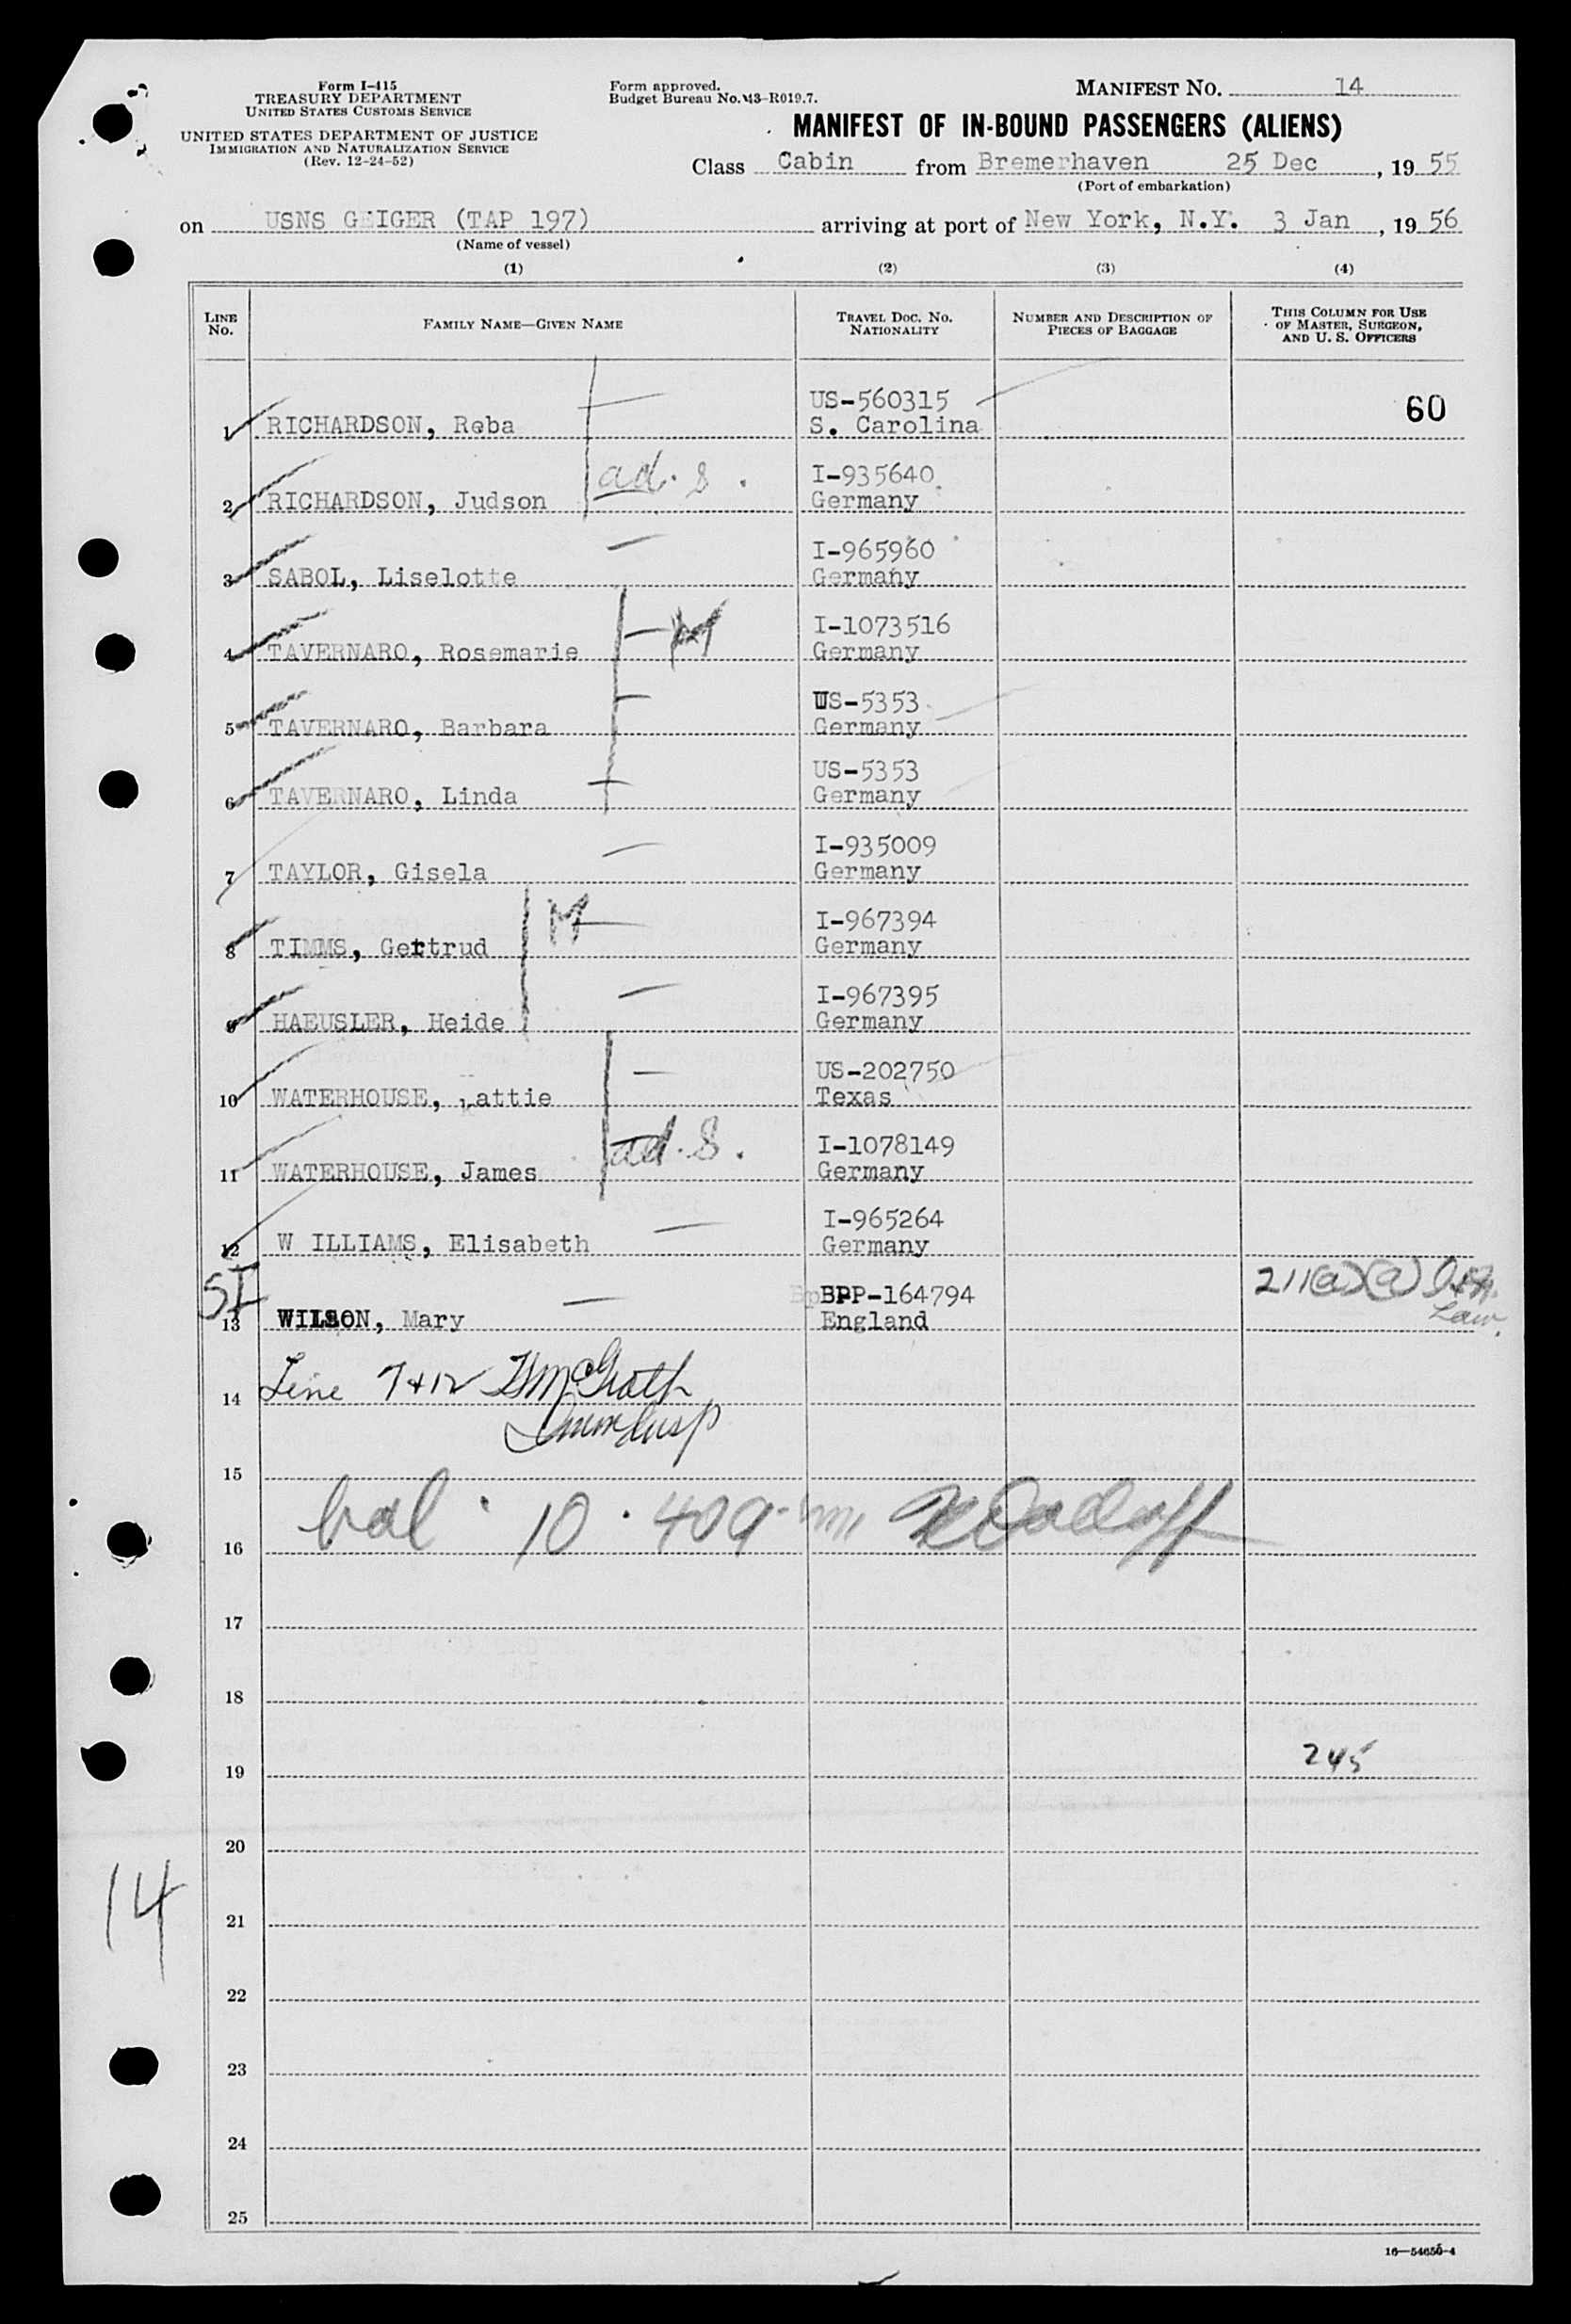 Form I-415
TREASURY DEPARTMENT
UNITED STATES CUSTOMS SERVICE
UNITED STATES DEPARTMENT OF JUSTICE
IMMIGRATION AND NATURALIZATION SERVICE
(Rev. 12-24-52)
Form approved.
Budget Bureau No. 43-R019.7.
MANIFEST No. 14
MANIFEST OF IN-BOUND PASSENGERS (ALIENS)
Class Cabin from Bremerhaven 25 Dec, 19 55
(Port of embarkation)
on USNS GEIGER (TAP 197) arriving at port of New York, N.Y. 3 Jan, 19 56
(Name of vessel)
(1) (2) (3) (4)
LINE No. FAMILY NAME—GIVEN NAME TRAVEL DOC. NO. NATIONALITY NUMBER AND DESCRIPTION OF PIECES OF BAGGAGE THIS COLUMN FOR USE OF MASTER, SURGEON, AND U. S. OFFICERS
US-560315 60
1 RICHARDSON, Reba S. Carolina
ad. 8. I-935640
2 RICHARDSON, Judson Germany
I-965960
3 SABOL, Liselotte Germany
M I-1073516
4 TAVERNARO, Rosemarie Germany
US-5353
5 TAVERNARO, Barbara Germany
US-5353
6 TAVERNARO, Linda Germany
I-935009
7 TAYLOR, Gisela Germany
M I-967394
8 TIMMS, Gertrud Germany
I-967395
9 HAEUSLER, Heide Germany
US-202750
10 WATERHOUSE, attie Texas
ad. 8. I-1078149
11 WATERHOUSE, James Germany
I-965264
12 W ILLIAMS, Elisabeth Germany
SI BPP-164794 211(a)(a)
13 WILSON, Mary England Law.
14 Line 7+12 McGrath
Imm Insp
15
16 bal. 10. 409
17
18
19 245
20
14
21
22
23
24
25
16—54650-4